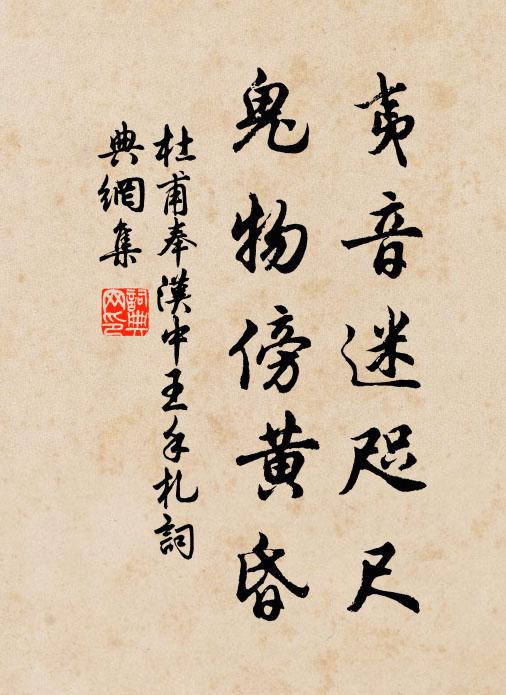 夷音迷咫尺
鬼物傍黃昏
杜甫奉漢中王手札詞
典網集
詞典網印